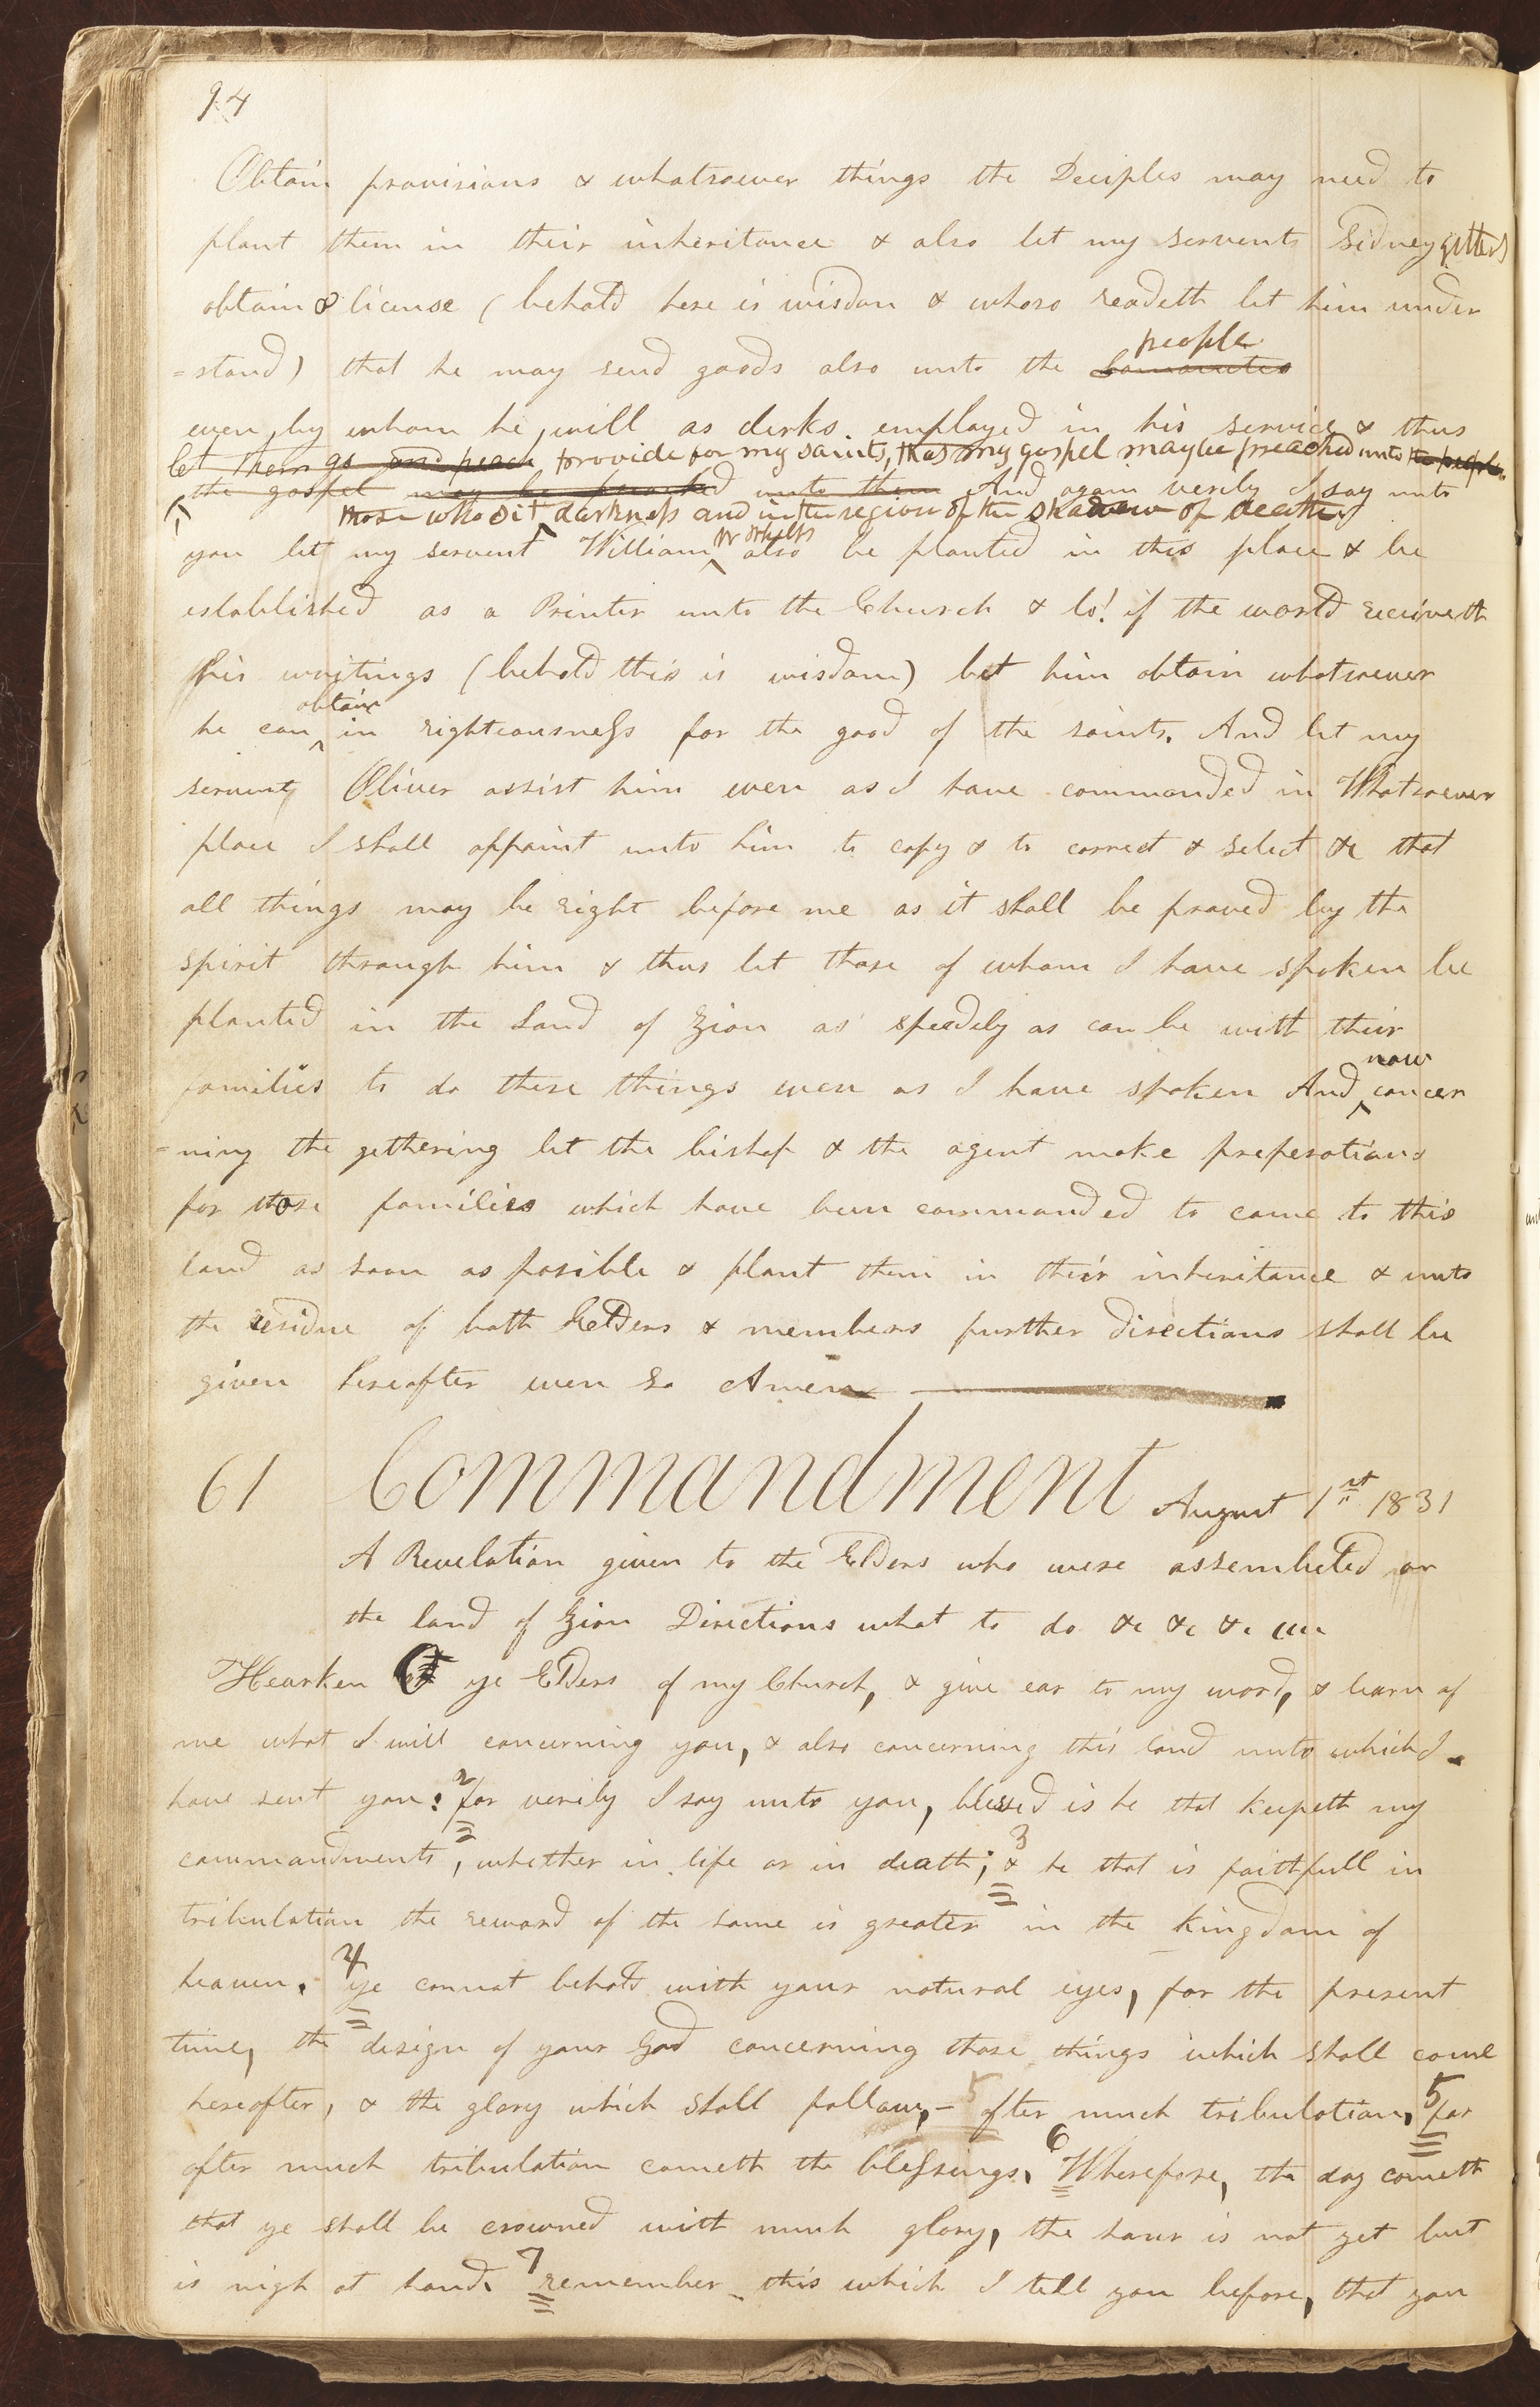 94
Obtain provisions & whatsoever things the Deciples may need to
plant them in their inheritance & also let my servents Sidney
obtain a license (behold here is wisdom & whoso readeth let him under
=stand) that he may send goods also unto the people Lamanites
even by whom he will as clerks employed in his service & thus
let them go and preach provide for my saints, that my gospel may be preached unto the people
the gospel may be preached unto them And again verily I say unto
those who sit darkness and in the region of the shadow of death
you let my servent William W Phelps also be planted in this place & be
established as a Printer unto the Church & lo! if the world receiveth
his writings (behold this is wisdom) let him obtain whatsoever
he can obtain in righteousness for the good of the saints. And let my
servent Oliver assist him even as I have commanded in Whatsoever
place I shall appoint unto him to copy & to correct & select &c that
all things may be right before me as it shall be proved by the
spirit through him & thus let those of whom I have spoken be
planted in the Land of Zion as speedely as can be with their
families to do these things even as I have spoken And now concer
=ning the gethering let the bishop & the agent make preperations
for those families which have been commanded to come to this
land as soon as posible & plant them in their inheritance & unto
the residue of both Elders & members further directions shall be
given hereafter even so Amen
61 Commandment August 1st 1831
A Revelation given to the Elders who were assembeled on
the land of Zion Directions what to do &c &c &c
Hearken O ye Elders of my Church, & give ear to my word, & learn of
me what I will concerning you, & also concerning this land unto which I
have sent you: 2 for verily I say unto you, blessed is he that keepeth my
commandments, whether in life or in death; 3 & he that is faithfull in
tribulation the reward of the same is greater in the kingdom of
heaven. 4 ye connot behold with your natural eyes, for the present
time, the design of your God concerning those things which shall come
hereafter, & the glory which shall follow,- 5 after much tribulation, 5 for
after much tribulation cometh the blessings. 6 Wherefore, the day cometh
that ye shall be crowned with much glory, the hour is not yet but
is nigh at hand. 7 remember this which I tell you before, that you